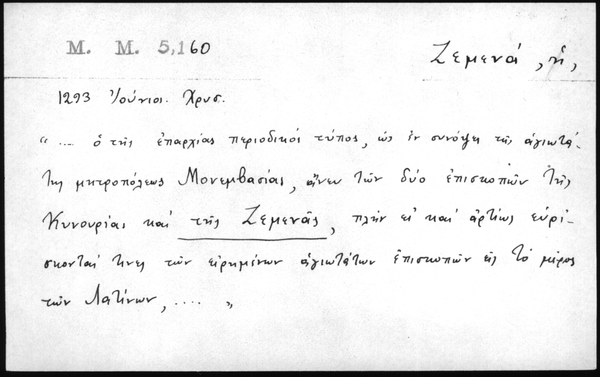 M. M. 5,160
Ζεμενά, ἡ,
1293 Ἰούνιοι. Χρυσ.
"... ὁ τῆς ἐπαρχίας περιοδικός τύπος, ὡς ἐν συνόψει τῆς ἁγιωτά-
της μητροπόλεως Μονεμβασίας, ἄνευ τῶν δύο ἐπισκοπῶν τῆς
Κυνουρίας καί τῆς Ζεμενᾶς, πλήν εἰ καί ἀρτίως εὑρί-
σκονταί τινες τῶν εἰρημένων ἁγιωτάτων ἐπισκοπῶν εἰς τό μέρος
τῶν Λατίνων, .... "